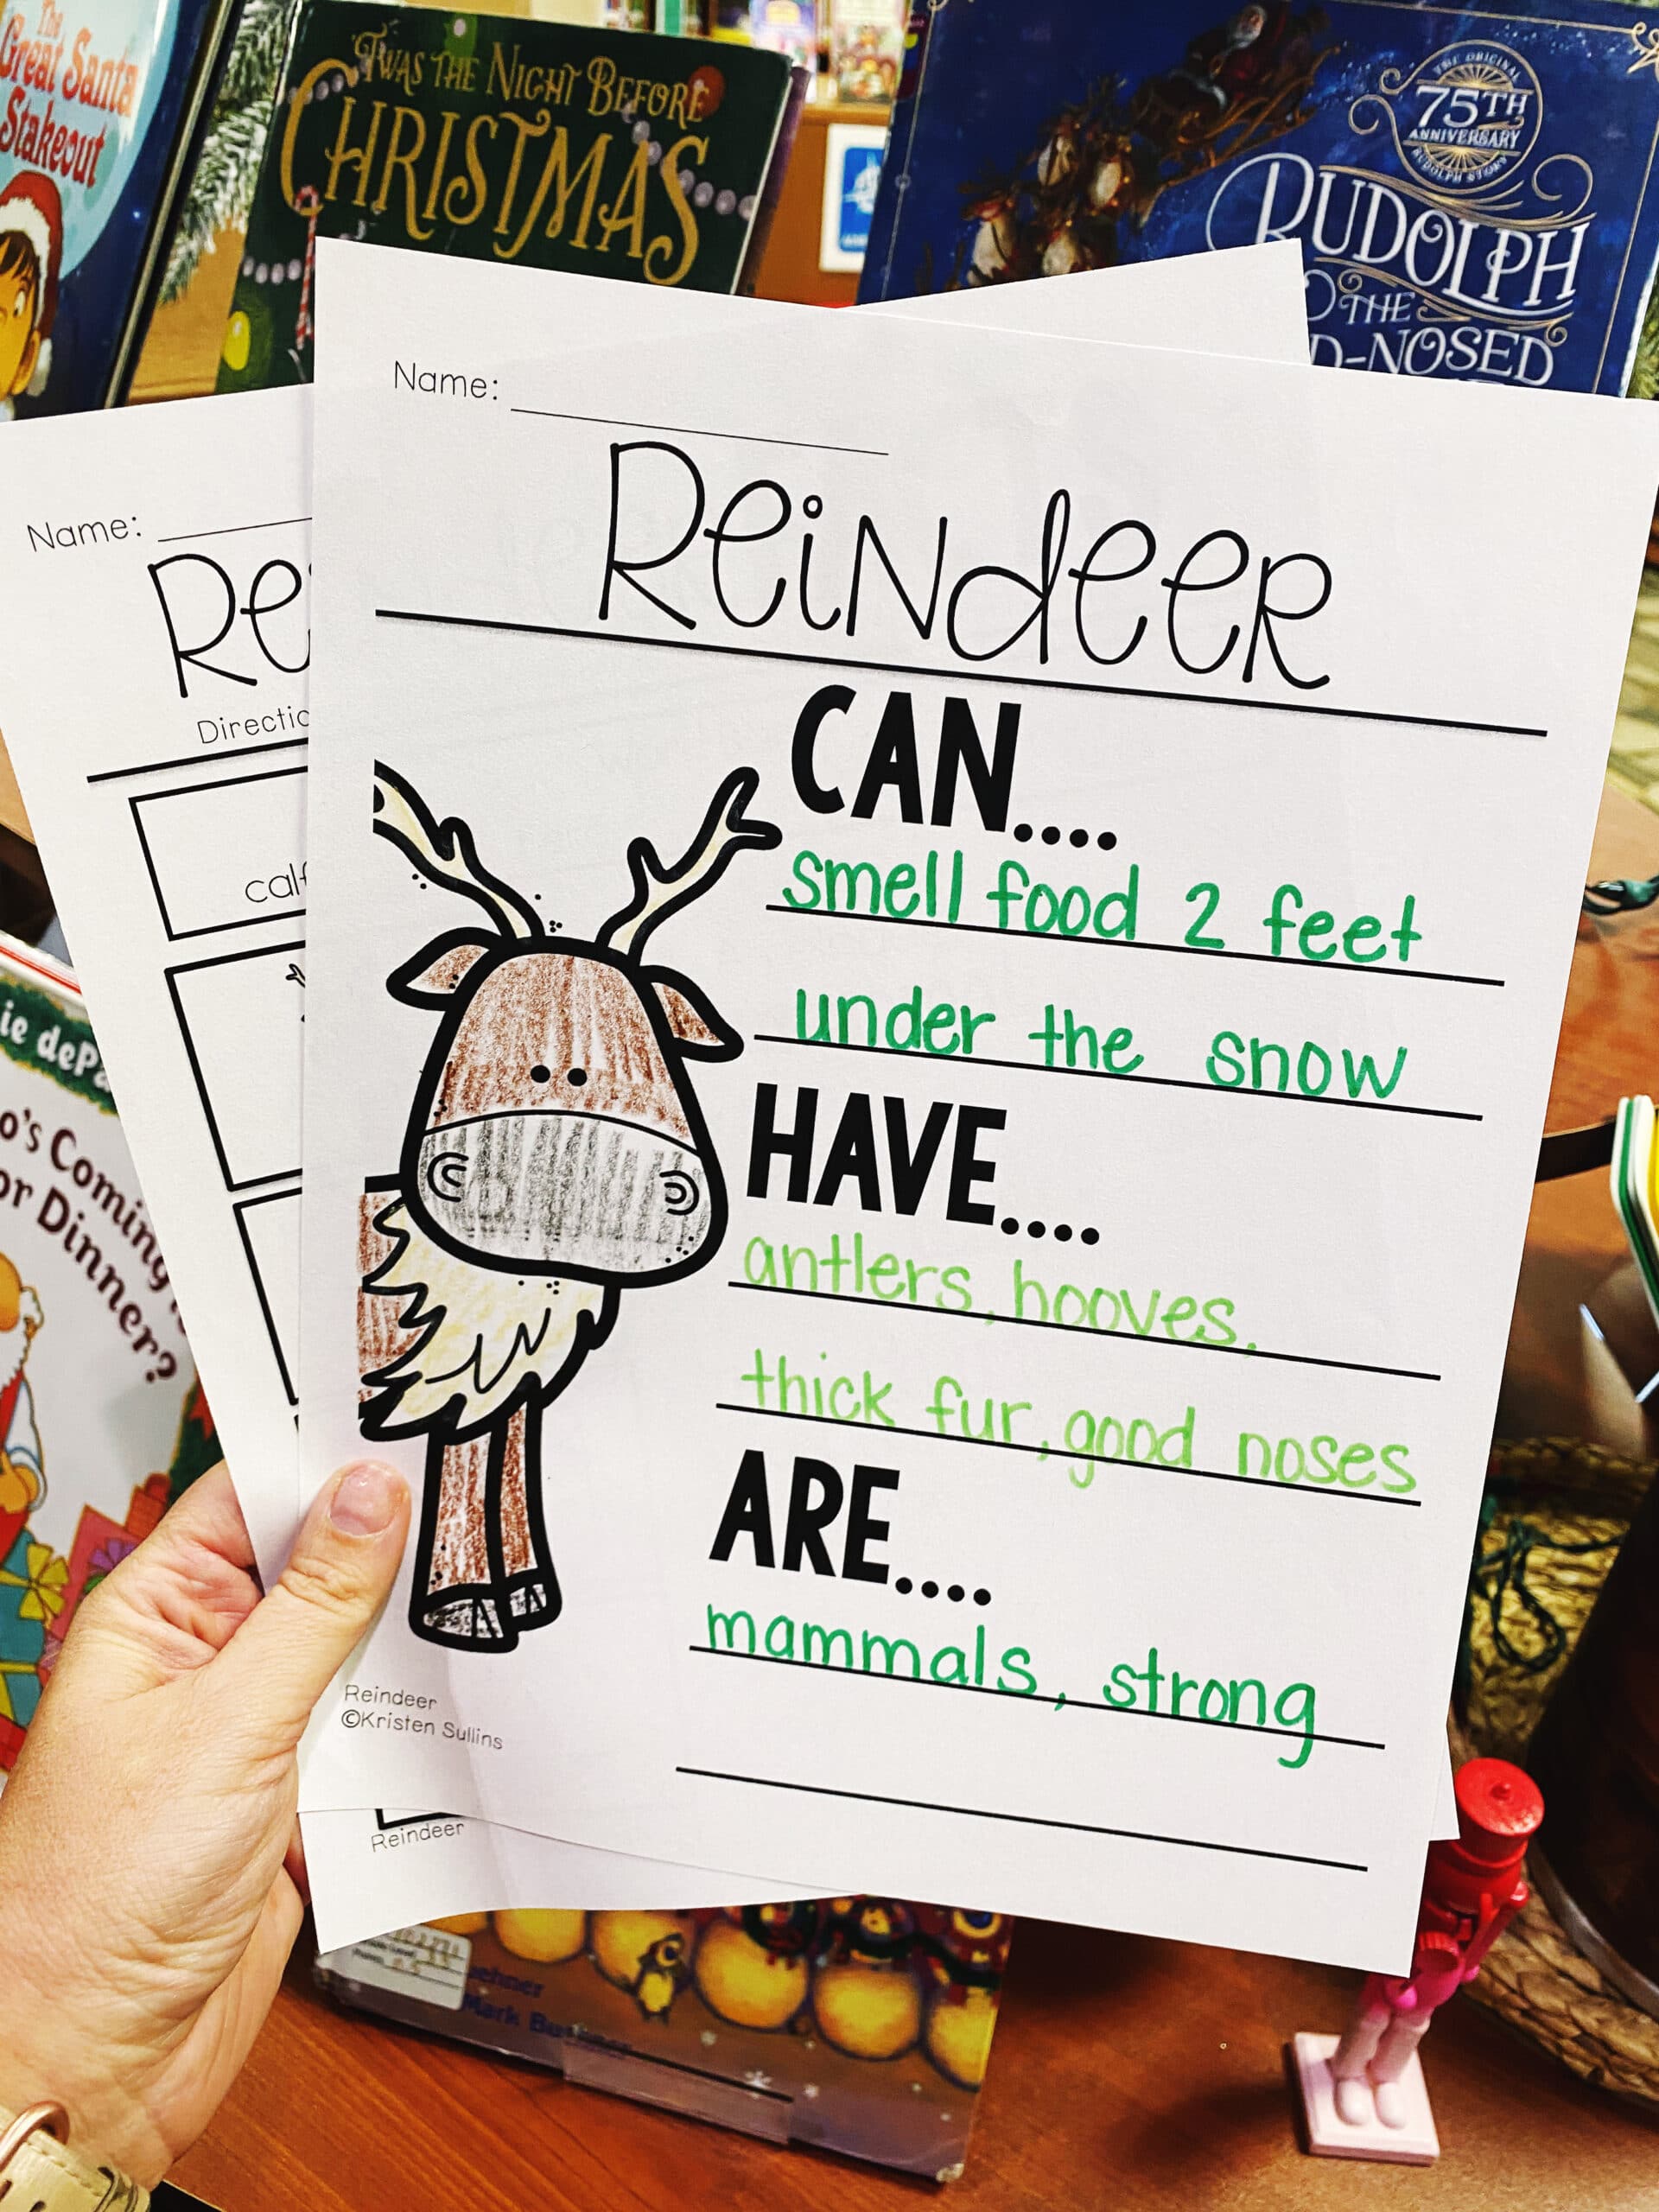 The
Great Santa
Stakeout
'TWAS THE NIGHT BEFORE
CHRISTMAS
THE ORIGINAL
75TH
ANNIVERSARY
RUDOLPH STORY
RUDOLPH
THE
D-NOSED
Name:
Re
Directio
calf
Name:
Reindeer
CAN....
smell food 2 feet
under the snow
HAVE....
antlers, hooves,
thick fur, good noses
ARE....
mammals, strong
Reindeer
©Kristen Sullins
Reindeer
ie dePa
o's Coming
or Dinner?
ehner
Mark Bu